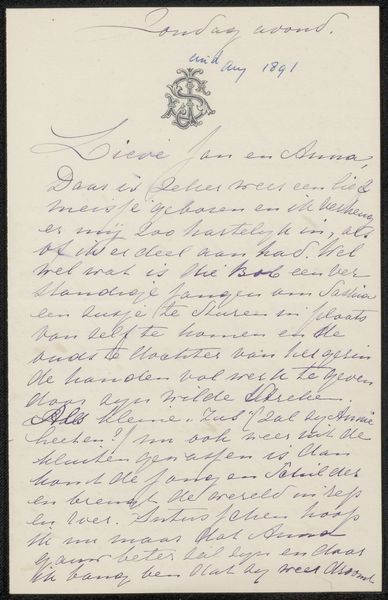 Zondag avond.
mid Aug 1891
Lieve Jan en Anna,
Daar is zeker weer een lief
meisje geboren en ik verheug
er mij zoo hartelijk in, als
of ik er deel aan had. Wel
wel wat is die Bob een ver
standige jongen om Saskia
een zusje te sturen in plaats
van zelf te komen en de
oudste dochter van het gezin
de handen vol werk te geven
door zijn wilde streken.
Als kleine Zus (zal zij Annie
heeten?) nu ook weer uit de
kluiten gewassen is dan
komt de jongen Schilder
en brengt de wereld in rep
en roer. Intusschen hoop
ik nu maar dat Anna
gauw beter zal zijn en daar
ik bang ben dat zij weer